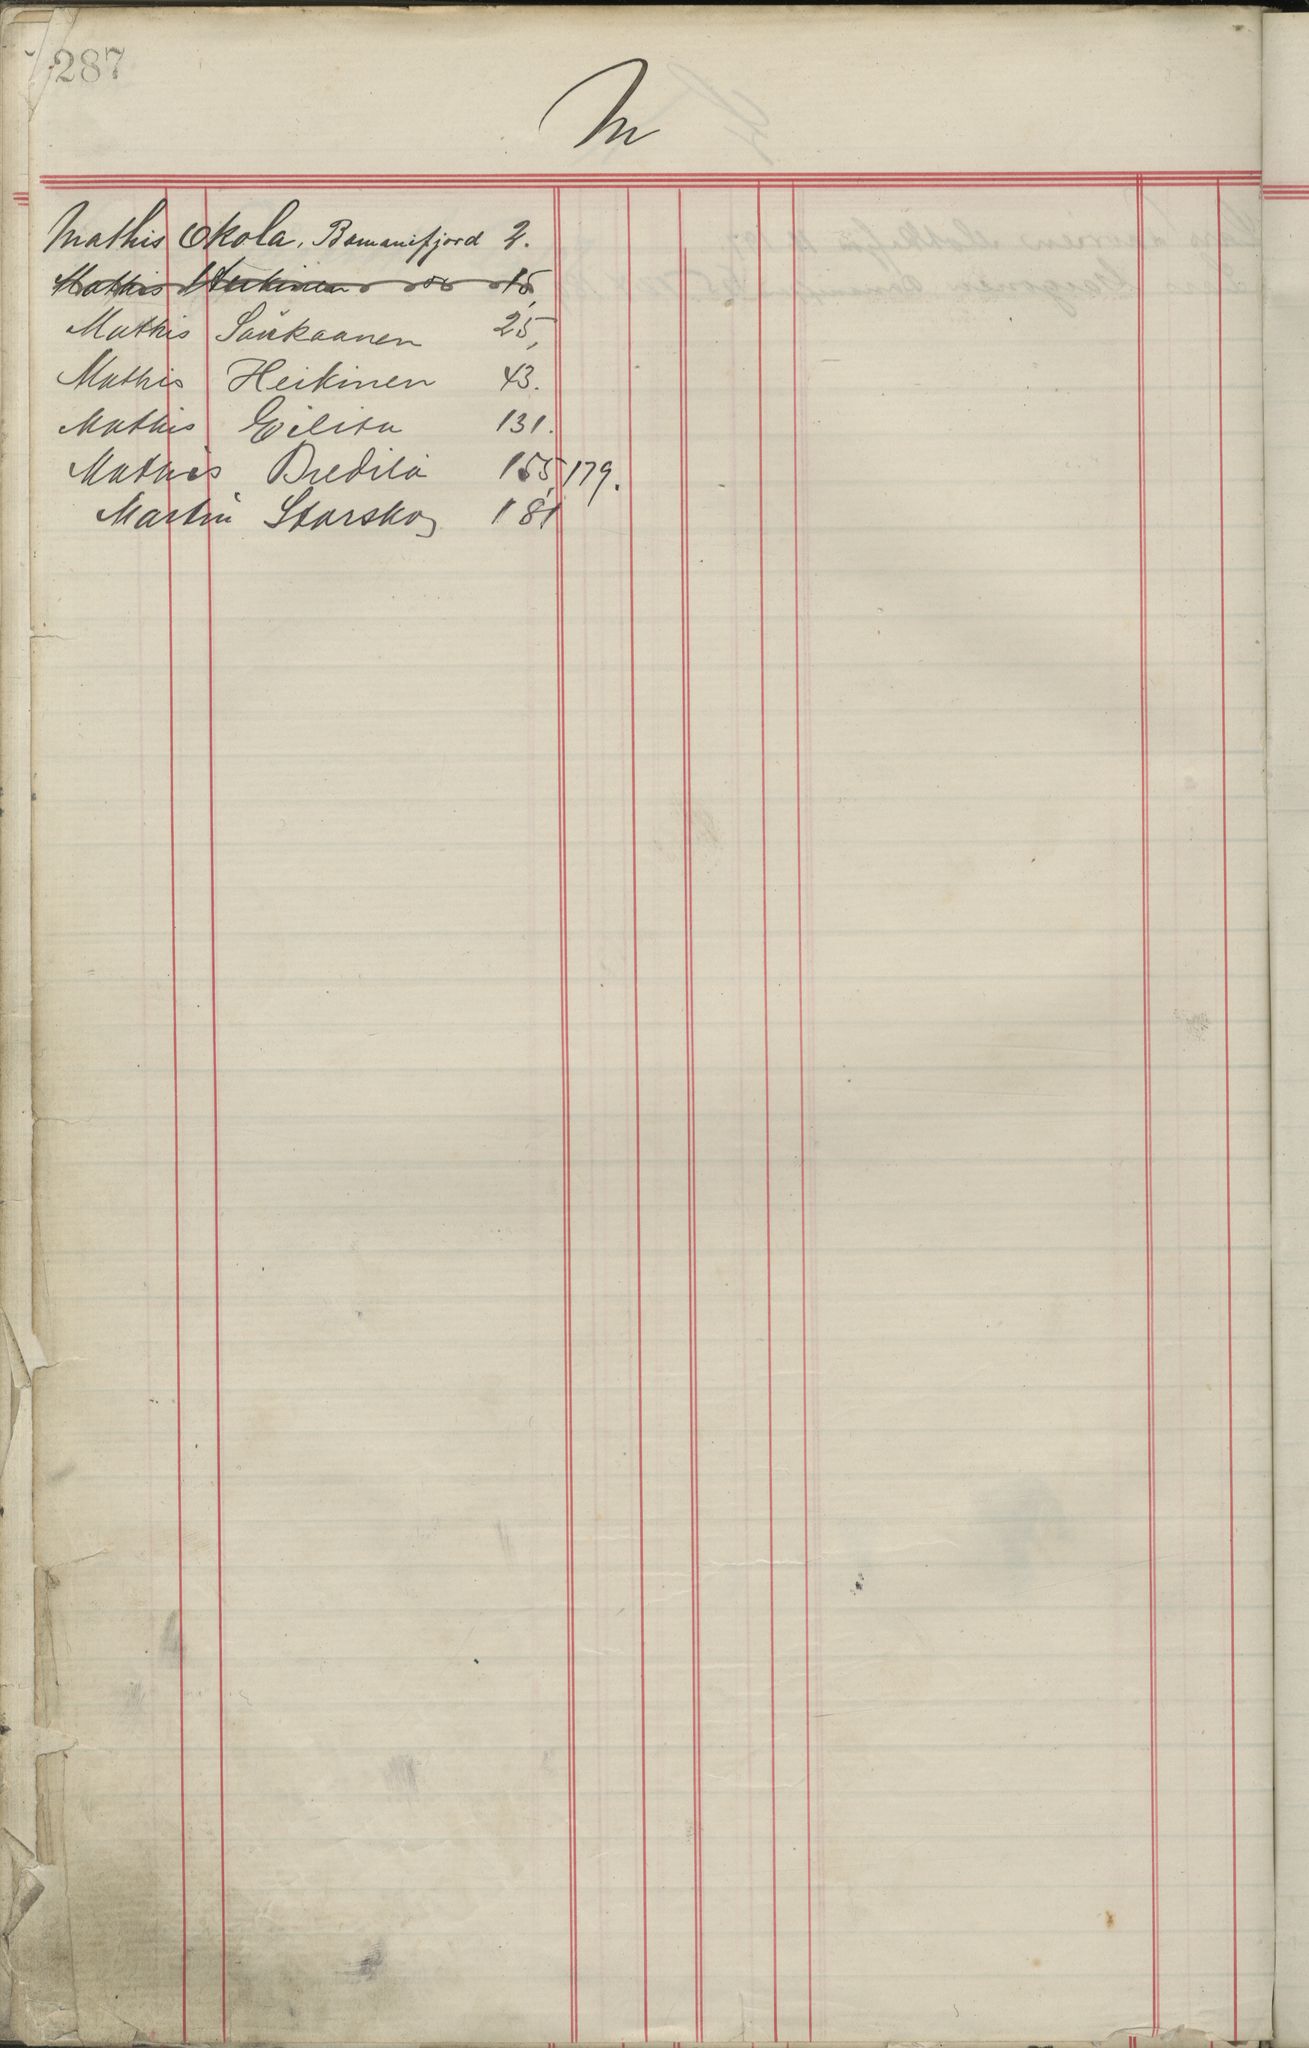 287
M
Mathis Okola, Bomanifjord 2.
Mathis Heikinen do 15,
Mathis Saukaanen 25,
Mathis Heikinen 43.
Mathis Eilita 131.
Mathis Bredila 155, 179.
Martin Storskog 181